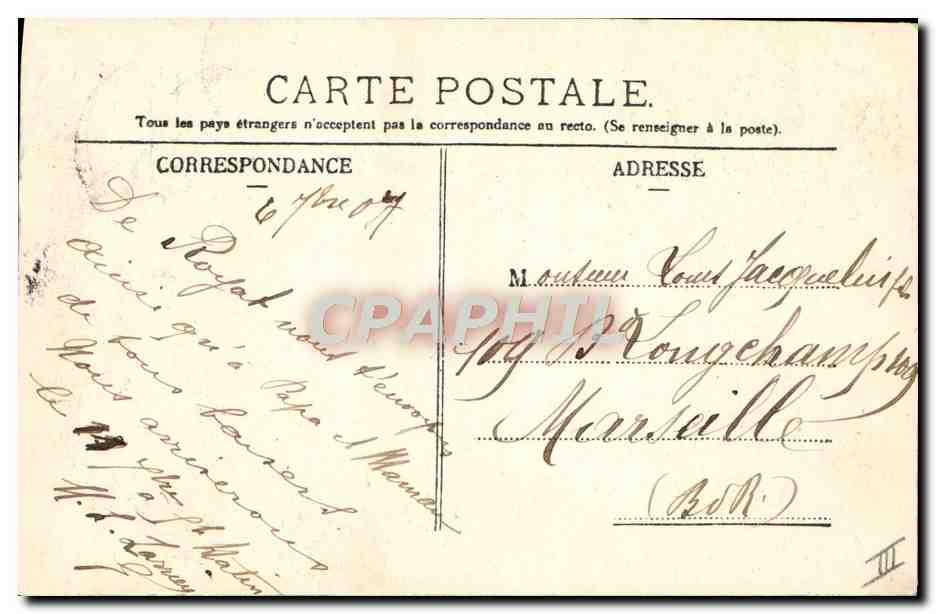 CARTE POSTALE.
Tous les pays étrangers n'acceptent pas la correspondance au recto. (Se renseigner à la poste).
CORRESPONDANCE
6 7bre 07
De Royat nous t'envoyons
ainsi qu'à Papa et Maman
de bons baisers.
Nous arriverons
le 7bre à
ADRESSE
Monsieur Louis Jacquelin fs
109 Bd Longchamp 109
Marseille
(B d R.)
III
CPAPHIL